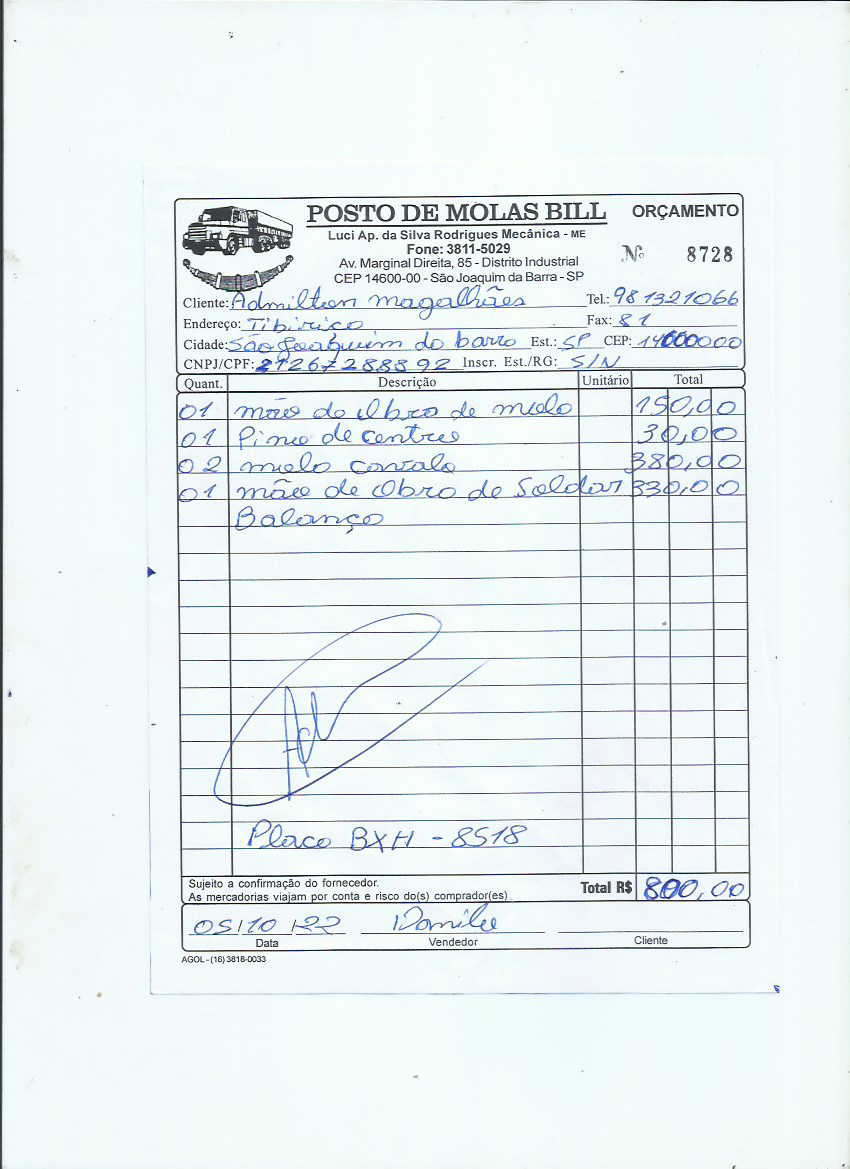 POSTO DE MOLAS BILL
ORÇAMENTO
Luci Ap. da Silva Rodrigues Mecânica - ME
Fone: 3811-5029
Nº 8728
Av. Marginal Direita, 85 - Distrito Industrial
CEP 14600-00 - São Joaquim da Barra - SP
Cliente: Admilton magalhães Tel.: 981321066
Endereço: Tibiriço Fax: 81
Cidade: São Joaquim do barro Est.: SP CEP: 14600000
CNPJ/CPF: 21267288892 Inscr. Est./RG: S/N
Quant. Descrição Unitário Total
01 mão do Obro de molo 150,00
01 Pino de centro 30,00
02 molo cavalo 380,00
01 mão de Obro de Soldar 330,00
Balanço
Placo BXH - 8518
Sujeito a confirmação do fornecedor.
As mercadorias viajam por conta e risco do(s) comprador(es)
Total R$ 800,00
05/10/22 Danilo
Data Vendedor Cliente
AGOL - (16) 3818-0033